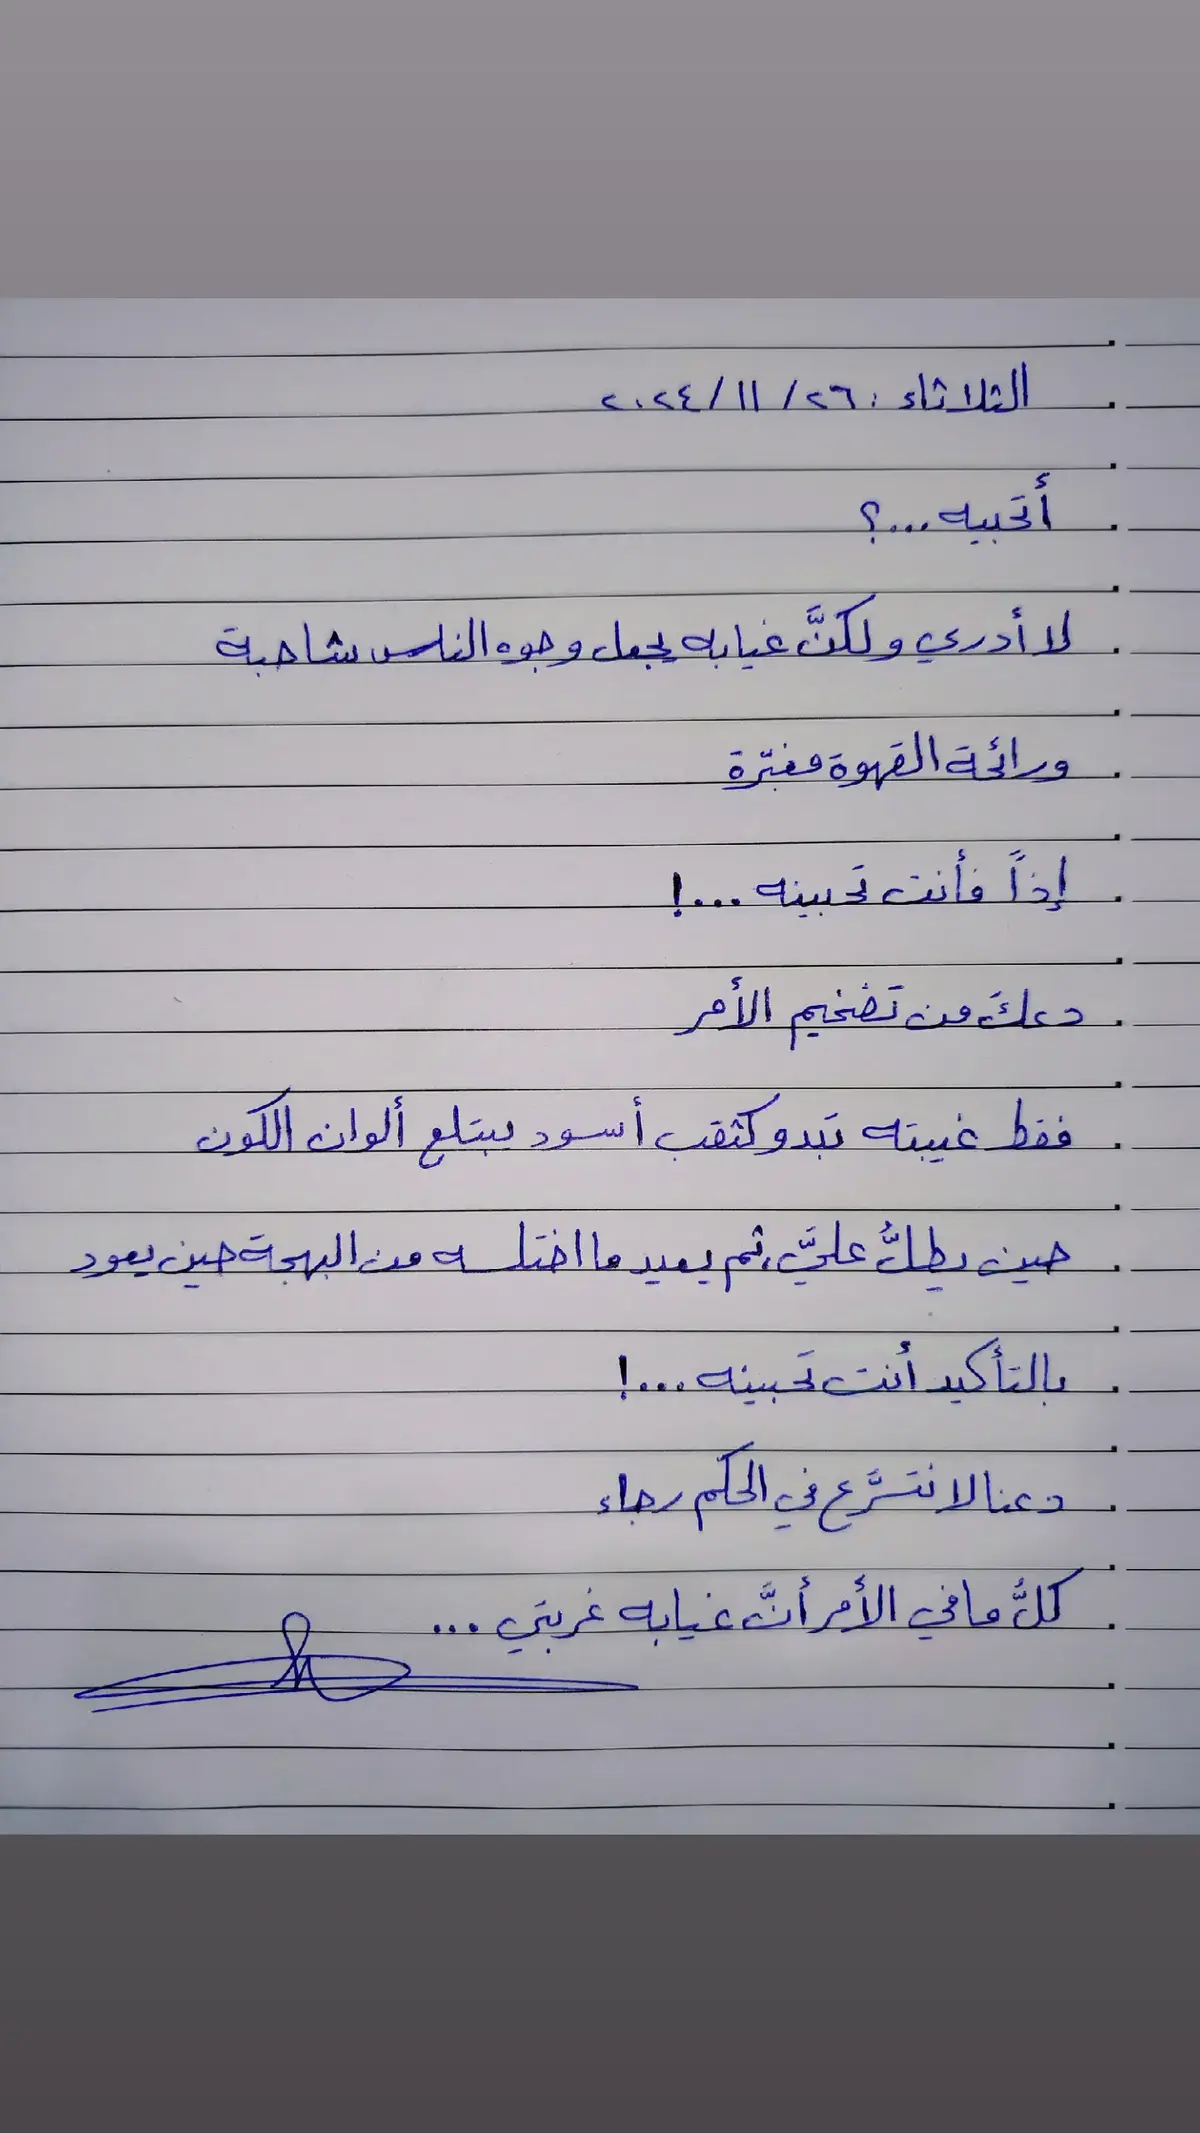 الثلاثاء : ٢٦ / ١١ / ٢٠٢٤
أتحبيه ...؟
لا أدري ولكنَّ غيابه يجعل وجوه الناس شاحبة
ورائحة القهوة مغبّرة
إذاً فأنت تحبينه ...!
دعكَ من تضخيم الأمر
فقط غيبته تبدو كثقب أسود يبتلع ألوان الكون
حين يطلُّ عليَّ، ثم يعيد ما اختلسه من البهجة حين يعود
بالتأكيد أنت تحبينه ...!
دعنا لا نتسرَّع في الحكم رجاء
كلُّ ما في الأمر أنَّ غيابه غربتي ...